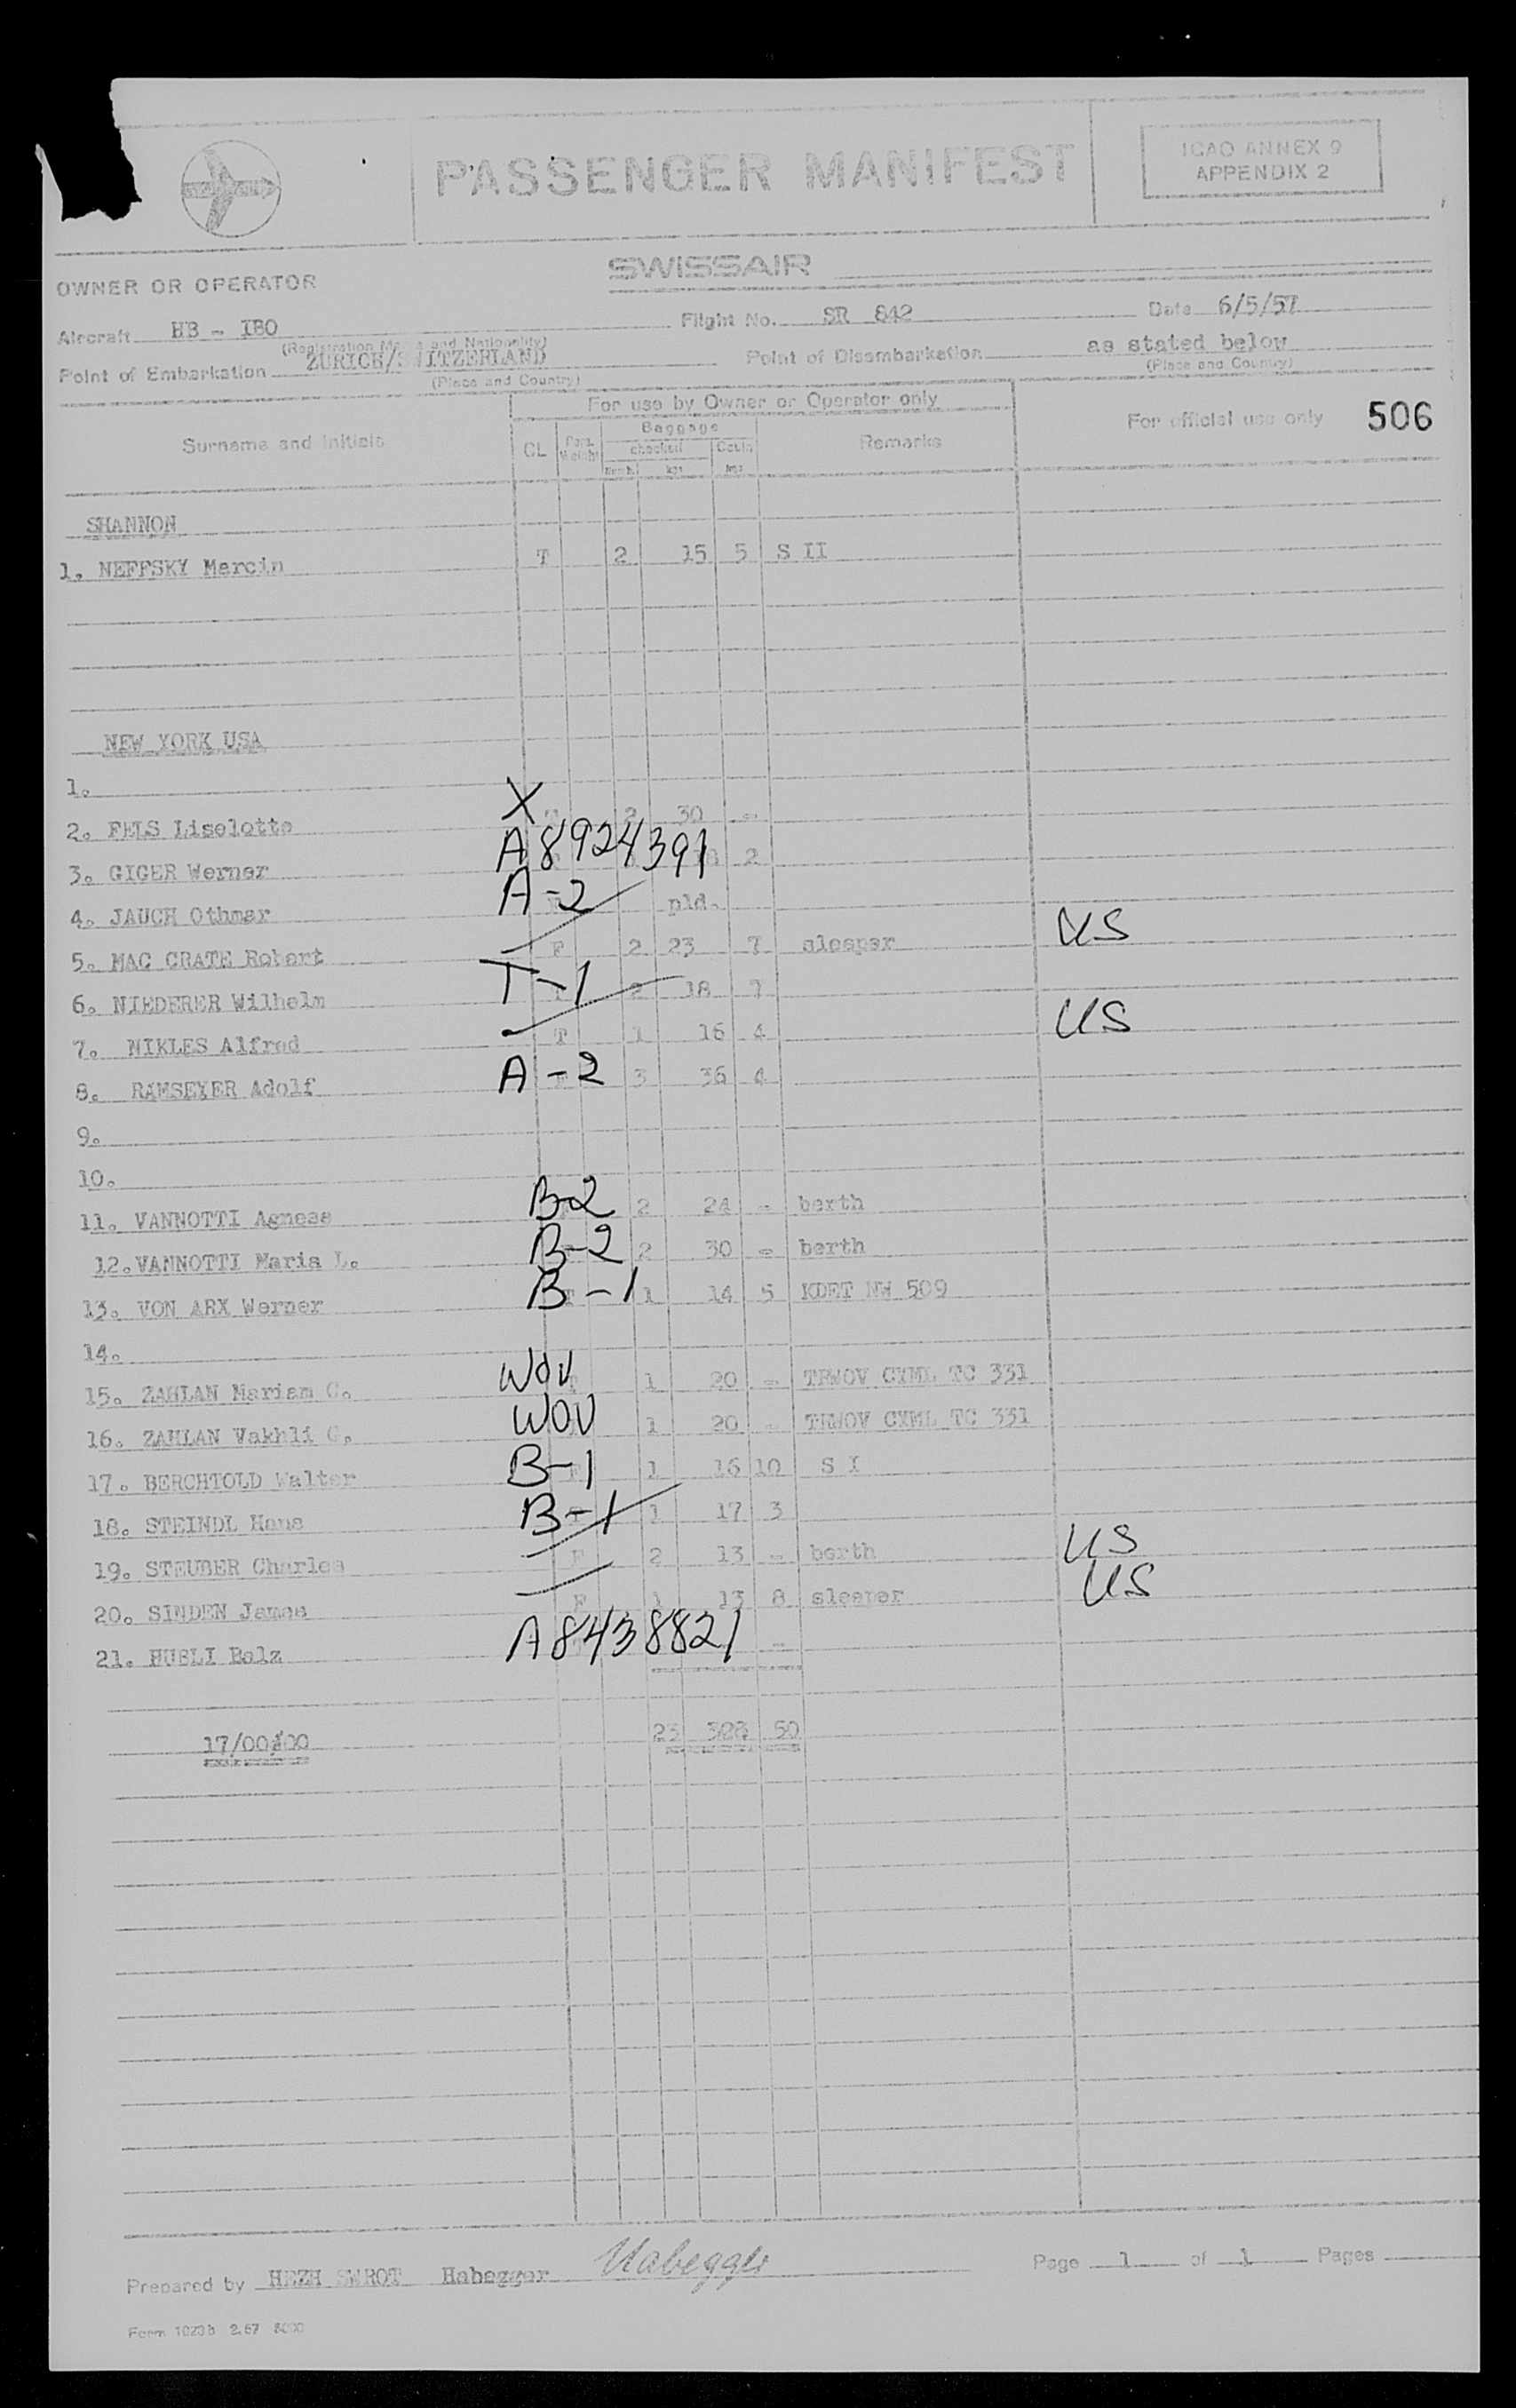 PASSENGER MANIFEST
ICAO ANNEX 9
APPENDIX 2
OWNER OR OPERATOR SWISSAIR
Aircraft HB - IBO Flight No. SR 842 Date 6/5/57
(Registration Marks and Nationality)
Point of Embarkation ZURICH/SWITZERLAND Point of Disembarkation as stated below
(Place and Country) (Place and Country)
For use by Owner or Operator only
For official use only 506
Surname and Initials CL Baggage Remarks
checked
kgs
SHANNON
1. NEFFSKY Marcin T 2 15 5 S II
NEW YORK USA
1.
2. FELS Liselotte X 2 30 -
3. GIGER Werner A8924391 2
4. JAUCH Othmar A-2 pld.
5. MAC CRATE Robert F 2 23 7 sleeper US
6. NIEDERER Wilhelm T-1 2 18 7
7. NIKLES Alfred T 1 16 4 US
8. RAMSEYER Adolf A-2 3 36 4
9.
10.
11. VANNOTTI Agnese B-2 2 24 - berth
12. VANNOTTI Maria L. B-2 2 30 - berth
13. VON ARX Werner B-1 1 14 5 KDET NW 509
14.
15. ZAHLAN Mariam G. WOV 1 20 - TRWOV CXML TC 331
16. ZAHLAN Vakhli G. WOV 1 20 - TRWOV CXML TC 331
17. BERCHTOLD Walter B-1 1 16 10 S I
18. STEINDL Hans B-1 1 17 3
19. STEUBER Charles F 2 13 - berth US
20. SINDEN James F 1 13 8 sleeper US
21. HUBLI Balz A8438821 -
17/00/00 23 50
Prepared by HEZH SWROT Habegger Habegger Page 1 of 1 Pages
Form 1023b 2.57